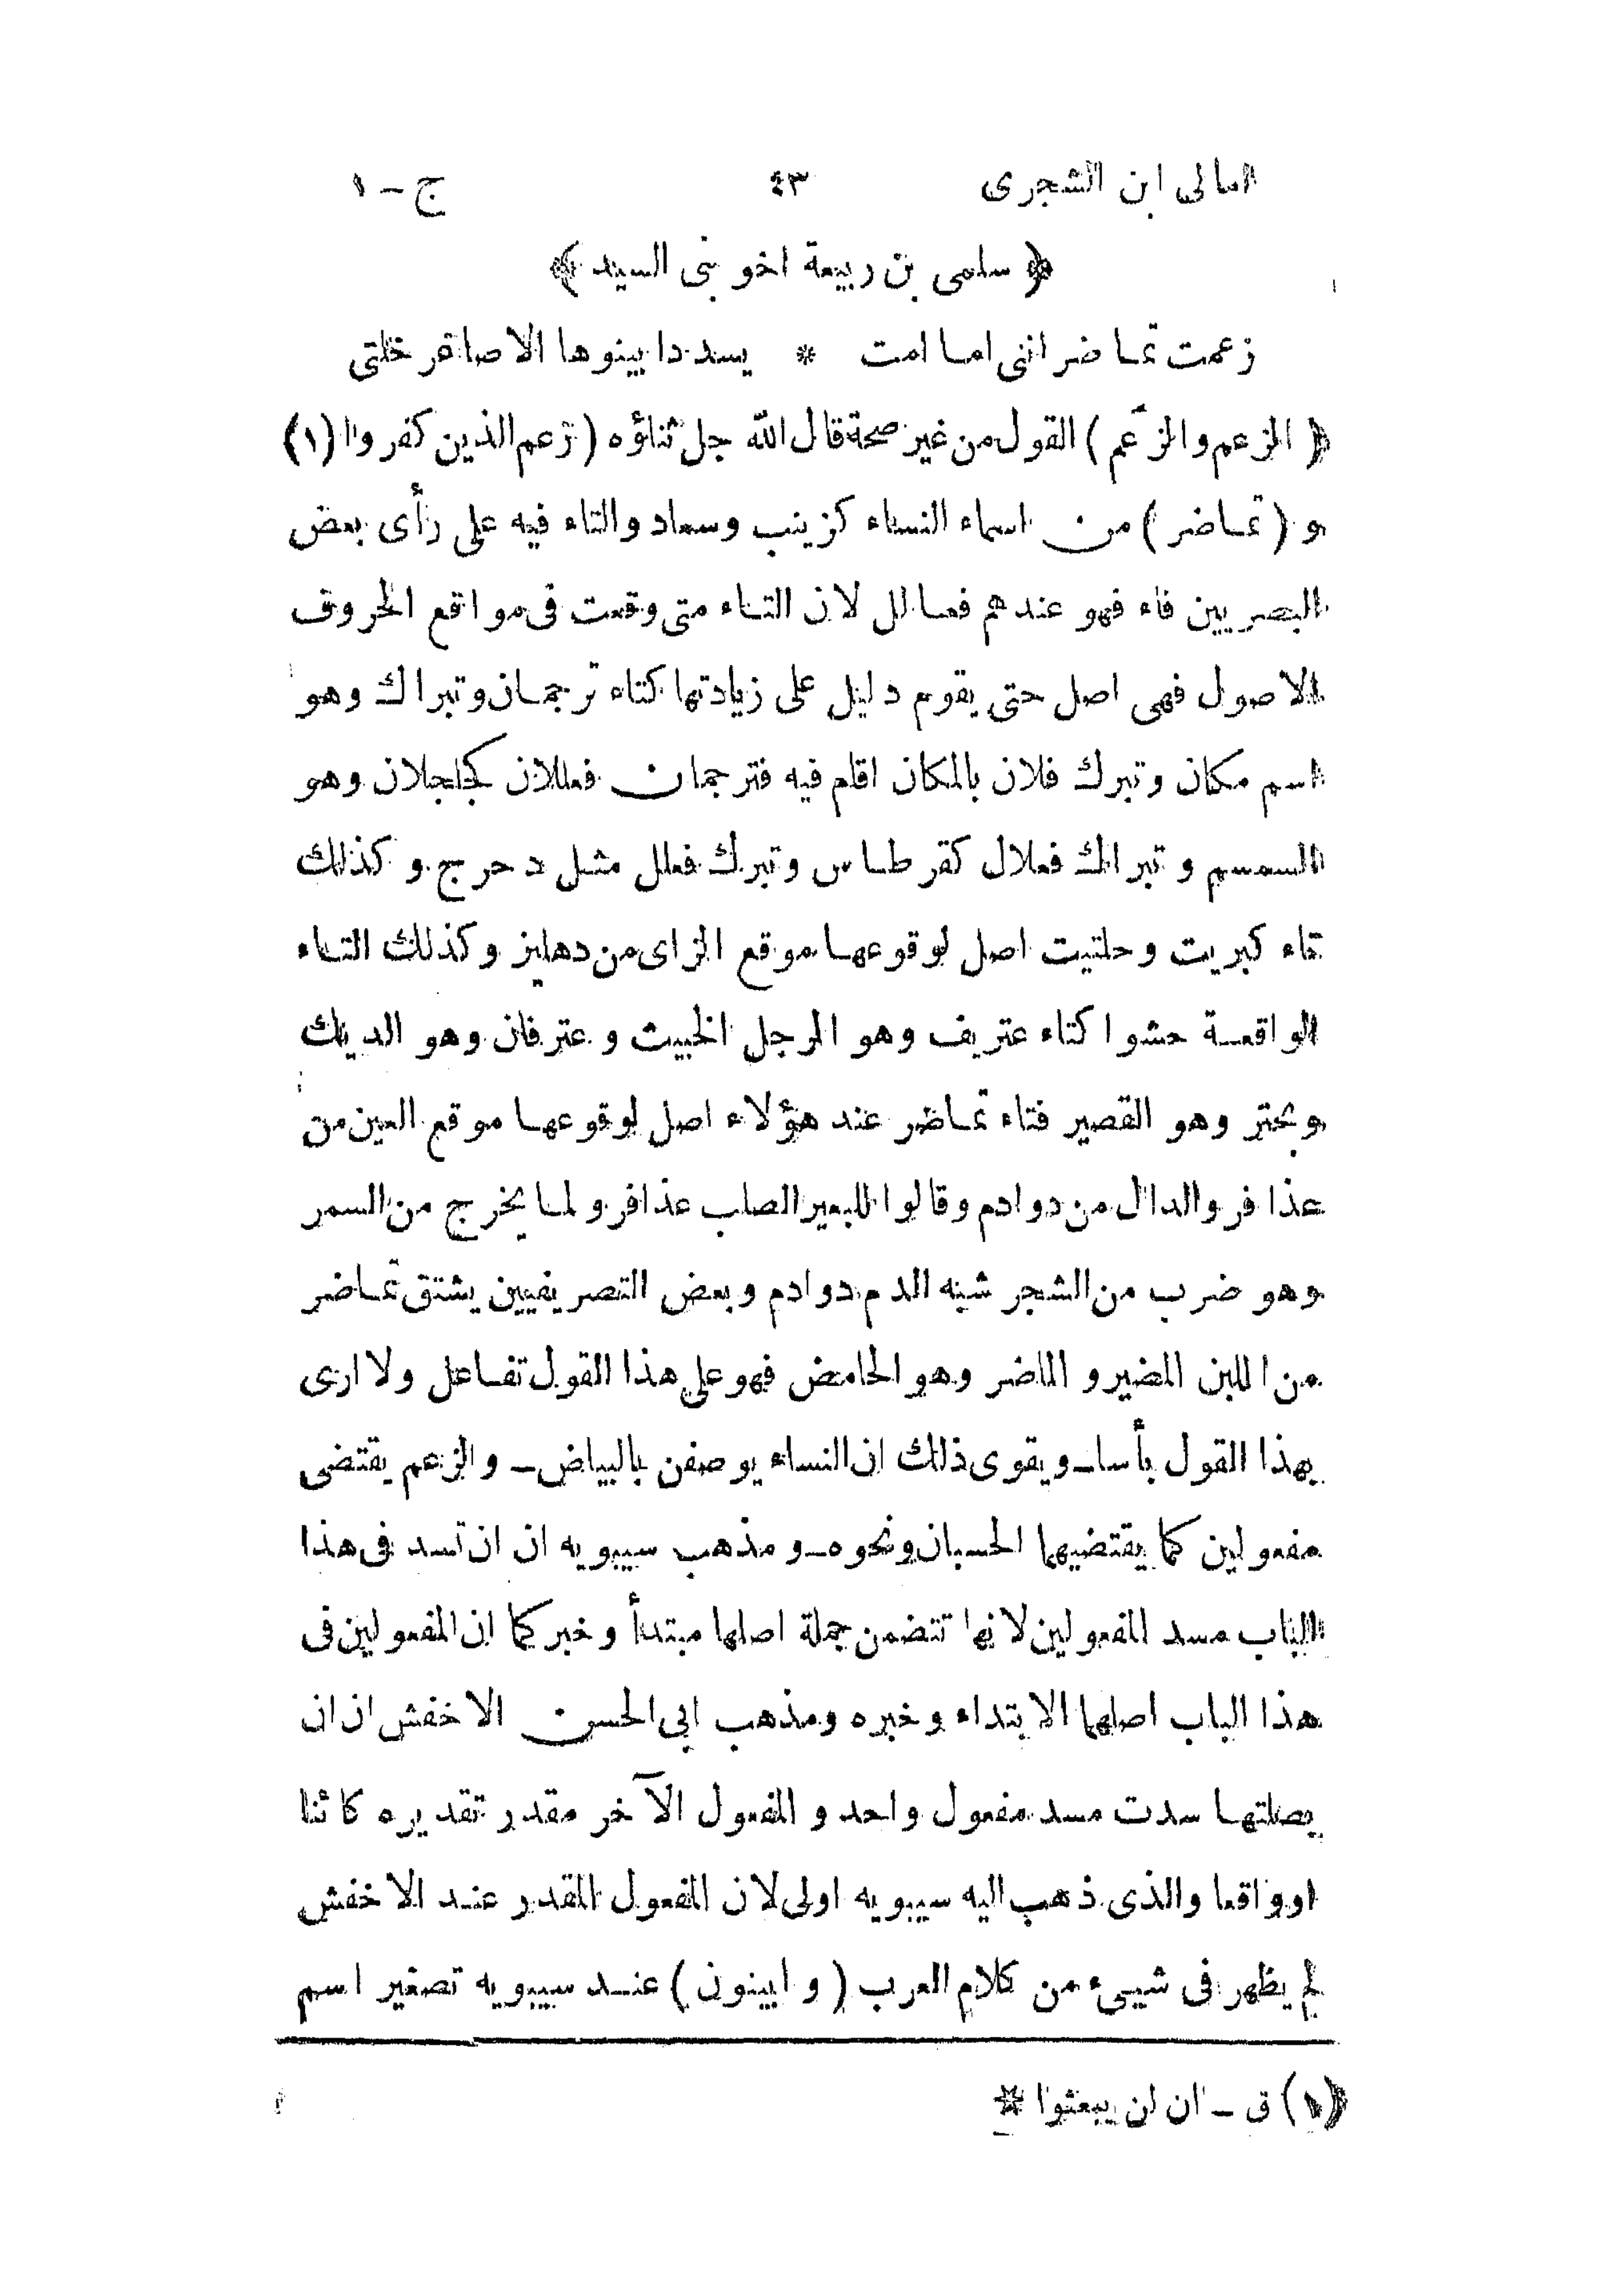 امالى ابن الشجرى ٤٣ ج - ١
﴿ سلمى بن ربيعة اخو بنى السيد ﴾
زعمت تماضر اننى اما امت * يسدد ابينوها الاصاغر خلتى
( الزعم والزعم ) القول من غير صحة قال الله جل ثناؤه ( زعم الذين كفروا (١)
و ( تماضر ) من اسماء النساء كزينب وسعاد والتاء فيه على رأى بعض
البصريين فاء فهو عندهم فعالل لان التاء متى وقعت فى مواقع الحروف
الاصول فهى اصل حتى يقوم دليل على زيادتها كتاء ترجمان وتبراك وهو
اسم مكان وتبرك فلان بالمكان اقام فيه فترجمان فعللان كجلجلان وهو
السمسم وتبراك فعلال كقرطاس وتبرك فعلل مثل دحرج وكذلك
تاء كبريت وحلتيت اصل لوقوعها موقع الزاى من دهليز وكذلك التاء
الواقعة حشوا كتاء عتريف وهو الرجل الخبيث وعترفان وهو الديك
وبحتر وهو القصير فتاء تماضر عند هؤلاء اصل لوقوعها موقع العين من
عذافر والدال من دوادم وقالوا للبعير الصلب عذافر ولما يخرج من السمر
وهو ضرب من الشجر شبه الدم دوادم وبعض التصريفيين يشتق تماضر
من اللبن المضير والماضر وهو الحامض فهو على هذا القول تفاعل ولا ارى
بهذا القول بأسا ـ ويقوى ذلك ان النساء يوصفن بالبياض ـ والزعم يقتضى
مفعولين كما يقتضيهما الحسبان ونحوه ـ ومذهب سيبويه ان ان تسد فى هذا
الباب مسد المفعولين لانها تتضمن جملة اصلها مبتدأ وخبر كما ان المفعولين فى
هذا الباب اصلهما الابتداء وخبره ومذهب ابى الحسن الاخفش ان ان
بصلتها سدت مسد مفعول واحد والمفعول الآخر مقدر تقديره كائنا
او واقعا والذى ذهب اليه سيبويه اولى لان المفعول المقدر عند الاخفش
لم يظهر فى شيىء من كلام العرب ( وابينون ) عند سيبويه تصغير اسم
(١) ق - ان لن يبعثوا *